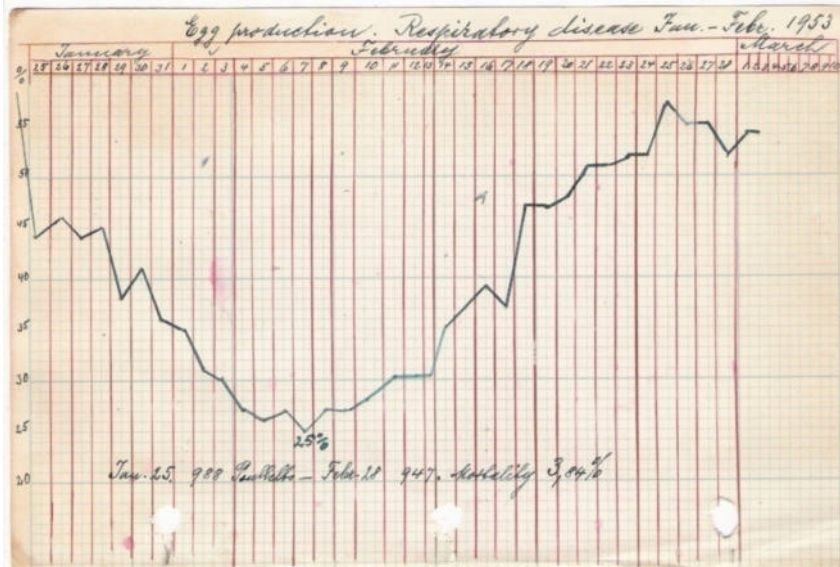 Egg production. Respiratory disease Jan. - Febr. 1953
January February March
% 25 26 27 28 29 30 31 1 2 3 4 5 6 7 8 9 10 11 12 13 14 15 16 17 18 19 20 21 22 23 24 25 26 27 28 1 2 3 4 5 6 7 8 9 10
55
50
45
40
35
30
25
25%
Jan. 25. 988 – Febr. 28 947. Mortality 3,84%
20